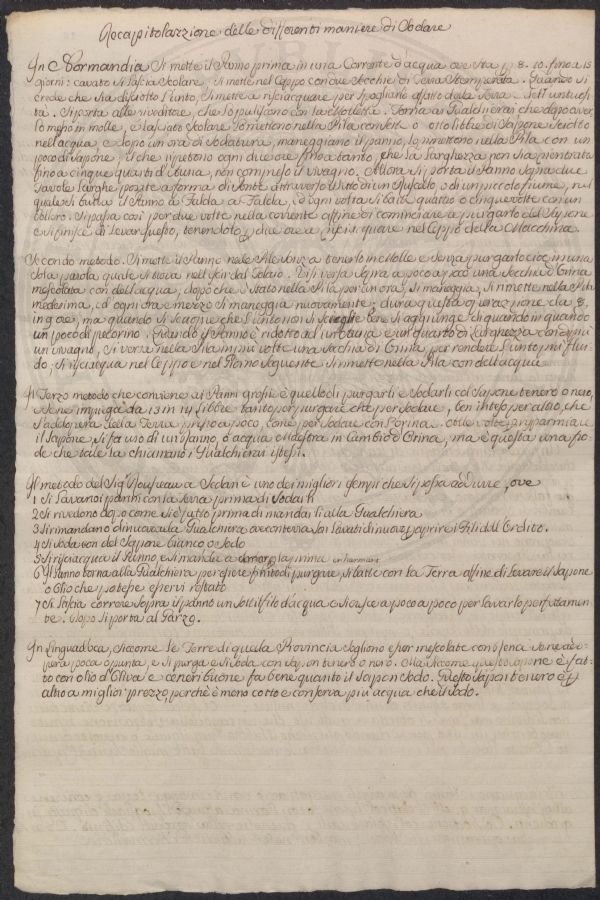 Recapitolazzione delle differenti maniere di Sodare
In Normandia si mette il Panno prima in una Corrente d'acqua ove sta p 8. 10. fino a 15
giorni: cavato si lascia Scolare. Si mette nel Ceppo con due Secchie di Terra Stemperata. Quando si
crede che sia disciolto l'unto, si mette a risciacquare per spogliarlo affatto della Terra e dell'untuosi
tà. Si porta alle riveditore, che lo puliscono con la
lo meno in molle, e lasciato Scolare lo mettono nella Pila con sette o otto libre di Sapone sciolto
nell'acqua, e dopo un'ora di Sodatura, maneggiano il panno, lo rimettono nella Pila con un
poco di Sapone, il che ripetono ogni due ore fino a tanto, che la larghezza non sia rientrata
fino a cinque quarti d'Auna, non compreso il vivagno. Allora si porta il Panno sopra due
Tavole larghe poste a forma di Ponte attraverso il letto di un Ruscello, o di un piccolo fiume, nel
quale si butta il Panno a Falda a Falda, ed ogni volta si batte quattro o cinque volte con un
Si passa così per due volte nella corrente affine di cominciare a purgarlo del Sapone
e si finisce di levar questo, tenendolo p due ore a risciacquare nel Ceppo della Macchina.
Secondo metodo. Si mette il Panno nelle Pile senza tenerlo in Molle e senza purgarlo cioè in una
sola parola quale si trova nel Telaio. Vi si versa sopra a poco a poco una Secchia di Orina
mescolata con dell'acqua, dopo che è stato nella Pila per un'ora, si maneggia; si rimette nella Pila
medesima, ed ogni ora e mezzo si maneggia nuovamente; dura questa operazione da 8,
in 9 ore, ma quando si scuopre che l'unto non si scioglie bene si aggiunge di quando in quando
un poco di pecorino. Quando il Panno è ridotto ad un'Auna e un quarto di larghezza con
un vivagno, si versa nella Pila in più volte una Secchia di Orina per rendere l'unto più flui-
do; si risciacqua nel Ceppo e nel Giorno seguente si rimette nella Pila con dell'acqua
Il Terzo metodo che conviene ai Panni grossi è quello di purgarli e Sodarli col Sapone tenero o nero,
e se ne impiega da 13 in 14 Libbre tanto per purgare che per Sodare, ben inteso per altro, che
s'addopera della Terra presso a poco, come per Sodare con l'Orina. Alle volte p risparmiare
il Sapone si fa uso di un Panno, o acqua
de che tale la chiamano i Gualchierai istessi.
Il metodo del Sigr Rousseau a Sedan è uno dei migliori esempi che si possa addurre, ove
1 Si Lavano i panni con la Terra prima di Sodarli
2 Si rivedono dopo come si è fatto prima di mandarli alla Gualchiera
3 Si rimandano di nuovo alla Gualchiera ove con terra son lavati di nuovo p aprire i Fili dell'Ordito.
4 Si soda con del Sapone bianco o sodo
5 Si risciacqua il Panno, e si manda a
6 Il Panno torna alla Gualchiera per essere finito di purgare, si batte con la Terra affine di Levare il Sapone
o Olio che potesse esservi restato
7 Si lascia correre sopra il panno un sottil filo d'acqua e si cresce a poco a poco per lavarlo perfettamen
te. Dopo si porta al Garzo.
In Linguadoca, siccome le Terre di quella Provincia sogliono esser mescolate con rena se ne ado-
pera poca o punta, e si purga e si soda con sapon tenero o nero. Ma siccome questo sapone è fat-
to con olio d'Oliva e ceneri buone fa bene quanto il sapon Sodo. Questo sapon tenero è p
altro a miglior prezzo, perchè è meno cotto e conserva più acqua che il sodo.